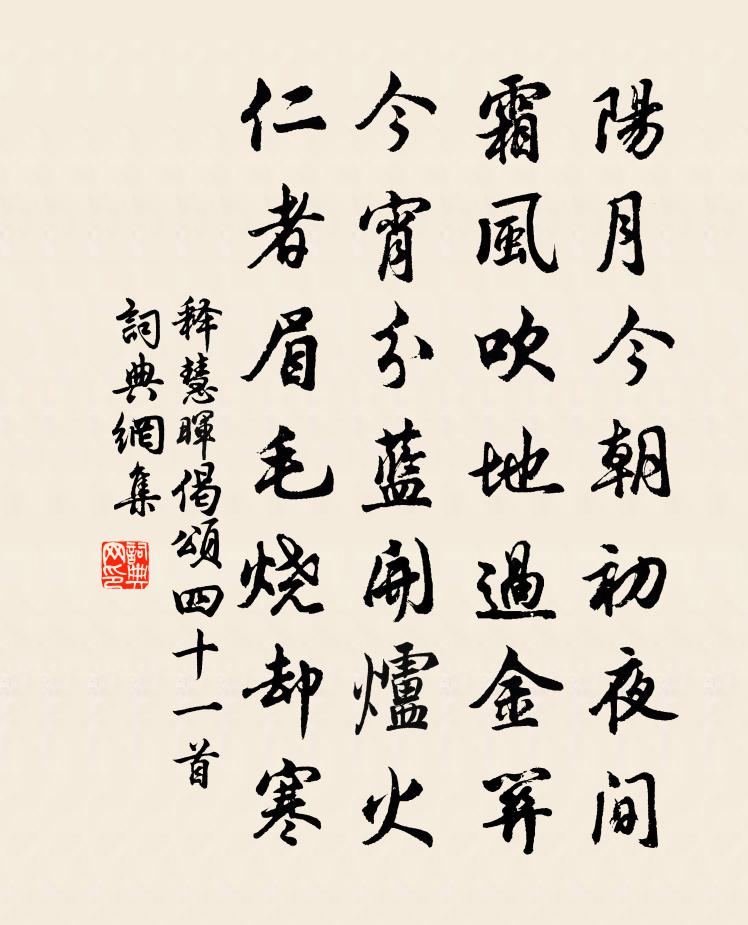 陽月今朝初夜间
霜風吹地過金關
今宵分藍開爐火
仁者眉毛烧却寒
释慧暉偈頌四十一首
詞典網集
詞典網印